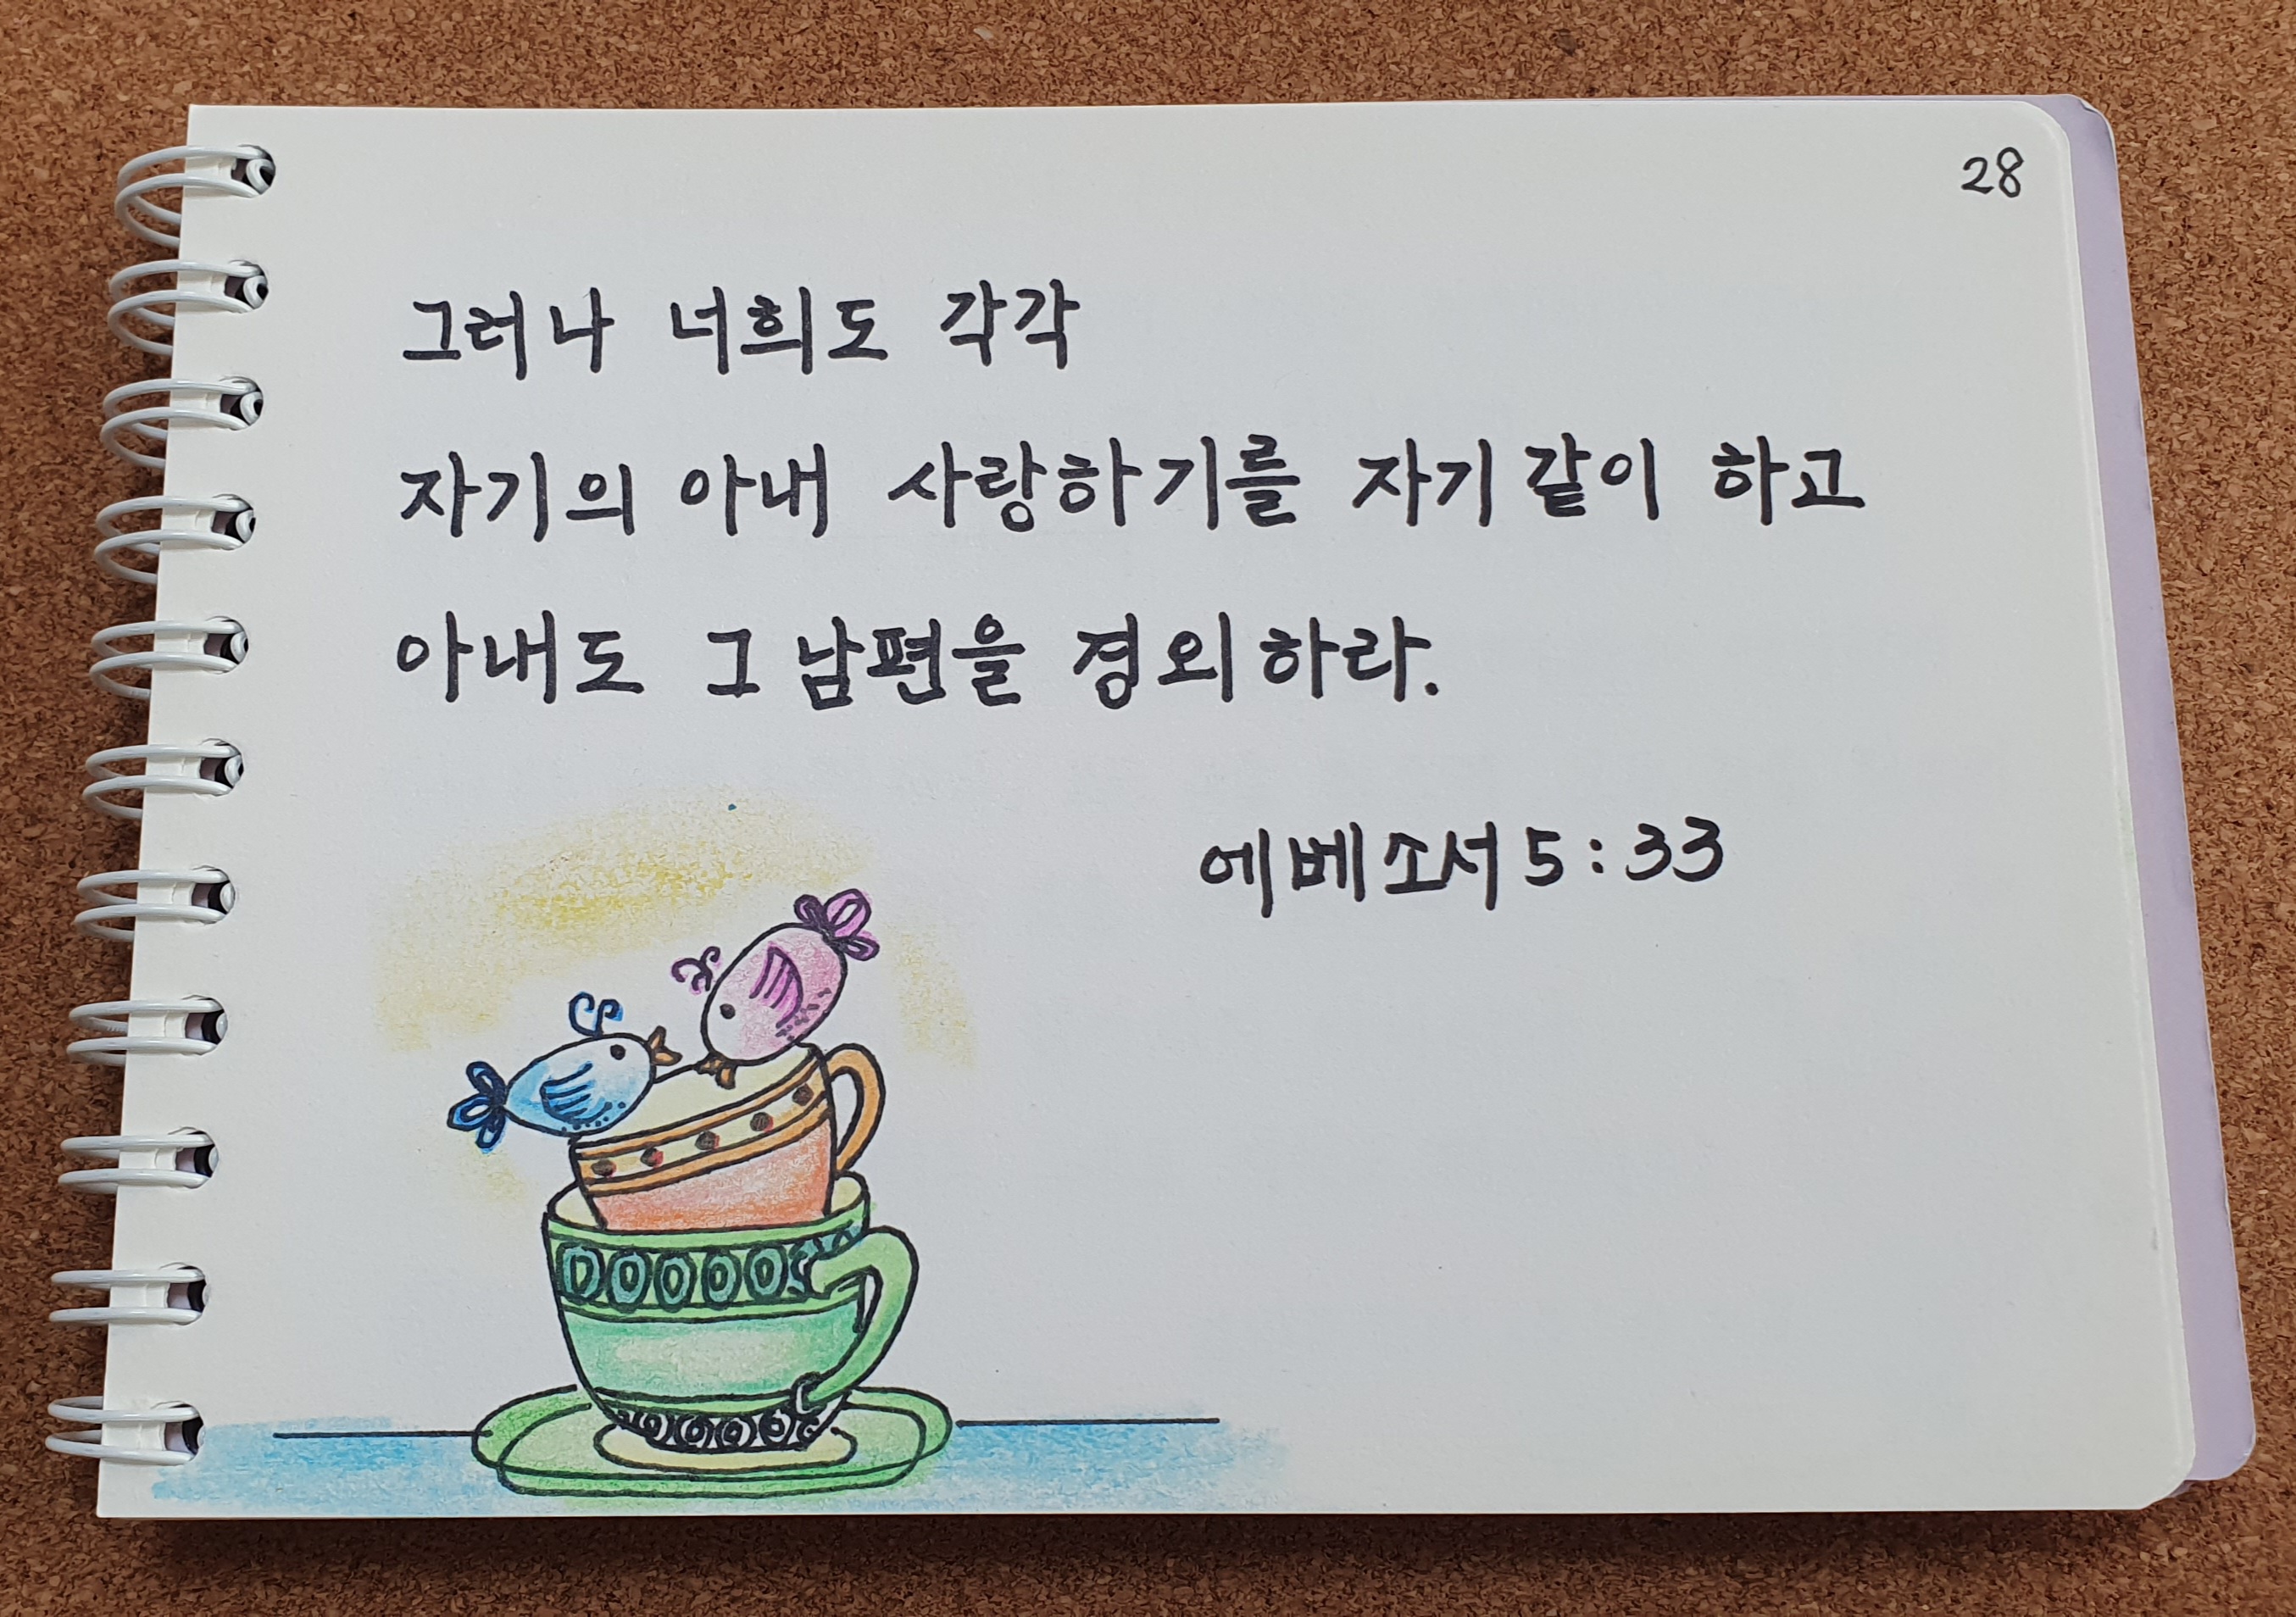 28
그러나 너희도 각각
자기의 아내 사랑하기를 자기 같이 하고
아내도 그 남편을 경외하라.
에베소서 5:33